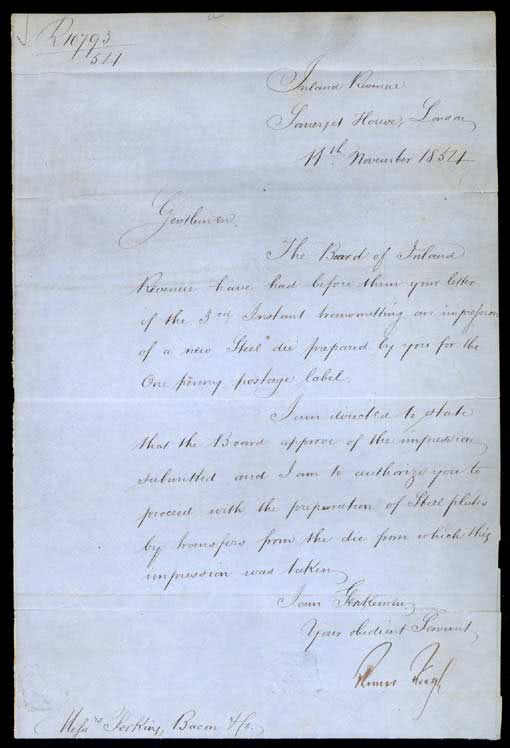 R10793
/54
Inland Revenue
Somerset House, London
11th November 1854
Gentlemen
The Board of Inland
Revenue have had before them your letter
of the 3rd Instant transmitting an impression
of a new Steel die prepared by you for the
One penny postage label.
I am directed to state
that the Board approve of the impression
submitted and I am to authorize you to
proceed with the preparation of Steel plates
by transfers from the die from which this
impression was taken
I am Gentlemen
Your obedient Servant
Keogh
Messrs Perkins, Bacon & Co.